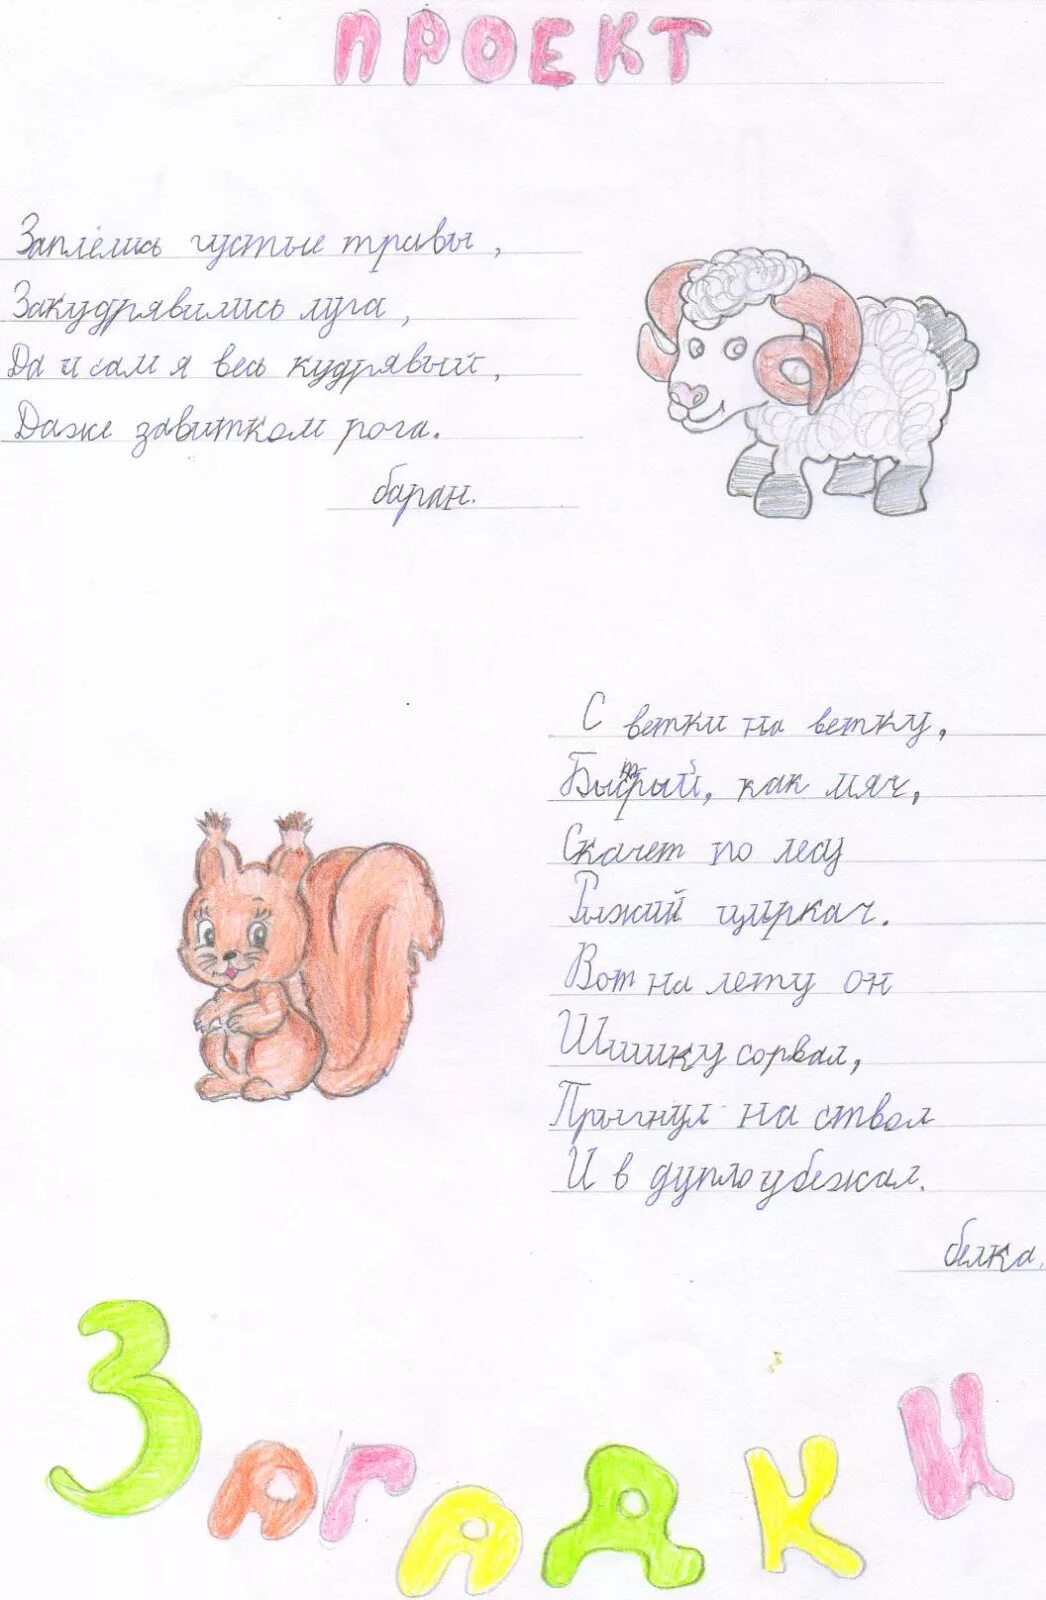 ПРОЕКТ
Заплелись густые травы,
Закудрявились луга,
Да и сам я весь кудрявый,
Даже завитком рога.
баран.
С ветки на ветку,
Быстрый, как мяч,
Скачет по лесу
Рыжий циркач.
Вот на лету он
Шишку сорвал,
Прыгнул на ствол
И в дупло убежал.
белка.
Загадки